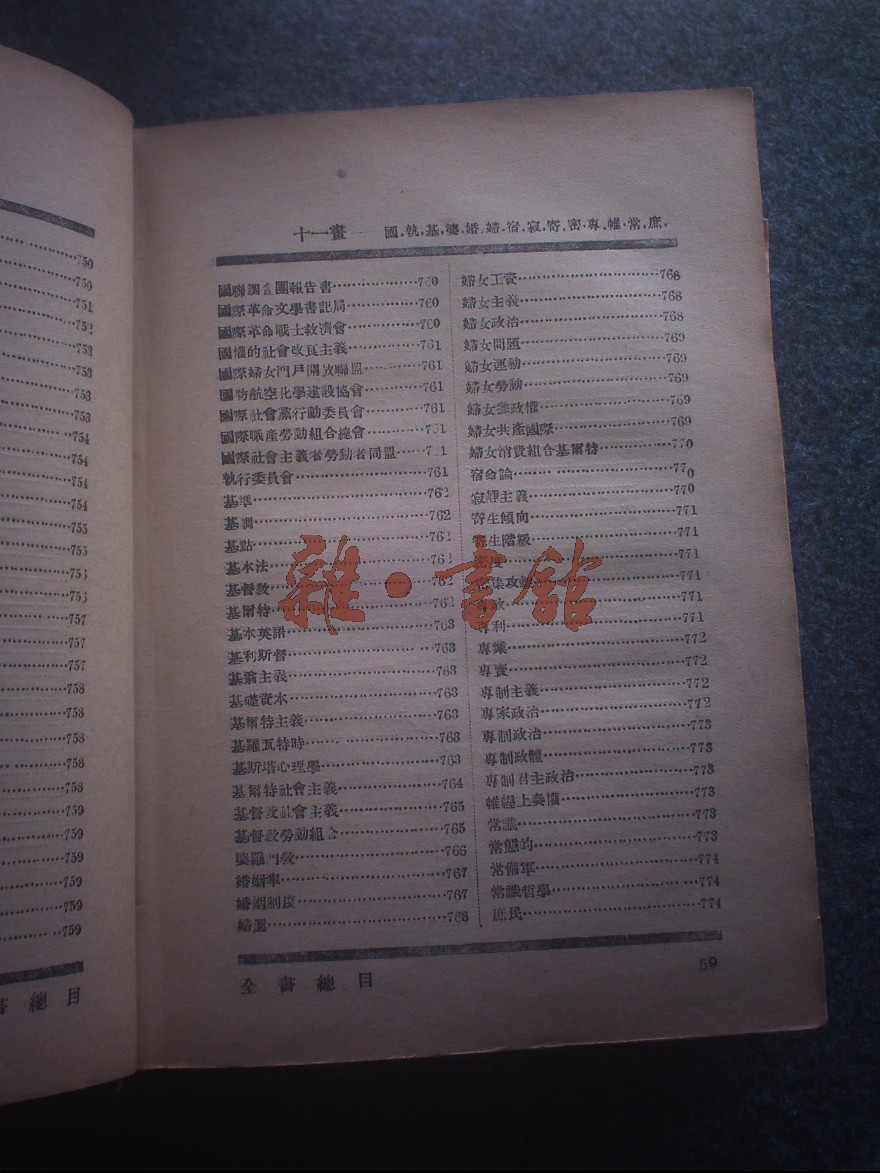 十一畫 國.執.基.婆.婚.婦.宿.寂.寄.密.專.帷.常.庶.
國聯調查團報告書 760
國際革命文學書記局 760
國際革命戰士救濟會 760
國權的社會改良主義 761
國際婦女門戶開放聯盟 761
國防航空化學建設協會 761
國際社會黨行動委員會 761
國際職產勞動組合總會
國際社會主義者勞動者同盟
執行委員會 761
基準 762
基調 762
基點 762
基本法 762
基督教 762
基爾特 762
基本英語 763
基利斯督 763
基翁主義 763
基礎資本 763
基爾特主義 763
基羅瓦特時 763
基斯塔心理學 763
基爾特社會主義 764
基督教社會主義 765
基督教勞動組合 765
婆羅門教 766
婚姻率 767
婚姻制度 767
婦選 768
婦女工資 768
婦女主義 768
婦女政治 768
婦女問題 769
婦女運動 769
婦女勞動 769
婦女參政權 769
婦女共產國際 769
婦女消費組合基爾特 770
宿命論 770
寂靜主義 770
寄生傾向 771
寄生階級 771
密度 771
密集攻 771
專政 771
專利 771
專業 772
專賣 772
專制主義 772
專家政治 772
專制政治 773
專制政體 773
專制君主政治 773
帷幄上奏權 773
常識 773
常態的 773
常備軍 774
常識哲學 774
庶民 774
全書總目
59
750
750
751
752
753
753
753
753
754
754
754
754
755
755
757
757
757
758
758
758
758
758
759
759
759
759
759
書總目
雜·書館